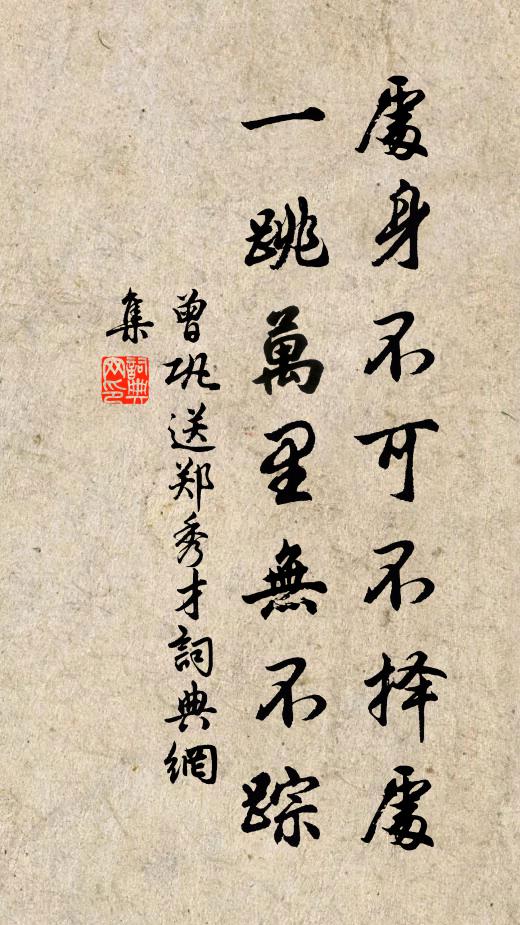 處身不可不择處
一跳萬里無不踪
曾巩送郑秀才詞典網
集
詞典
网印